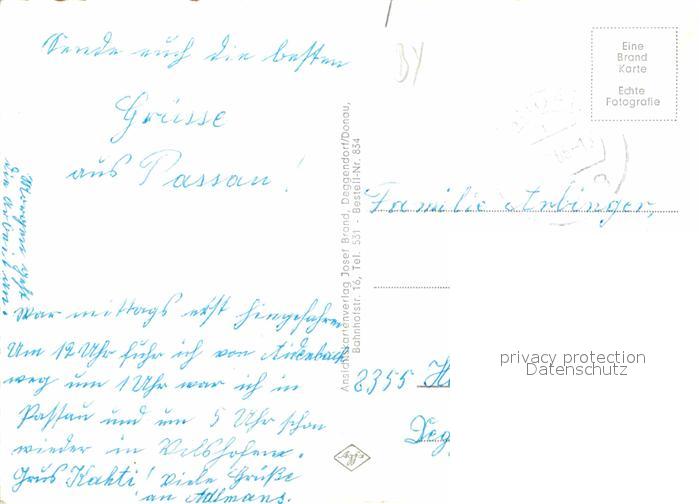 Sende euch die besten
Grüsse
aus Passau!
Morgens geht
War mittags erst hingefahren
Um 12 Uhr fuhr ich von Aidenbach
weg um 1 Uhr war ich in
Passau und um 5 Uhr schon
wieder in Vilshofen.
Grus Kathi! Viele Grüße
an Adlmans.
Ansichtskartenverlag Josef Brand, Deggendorf/Donau,
Bahnhofstr. 16, Tel. 531 - Bestell-Nr. 834
BY
Eine
Brand
Karte
Echte
Fotografie
Familie Arbinger,
8355 H
Deg
privacy protection
Datenschutz